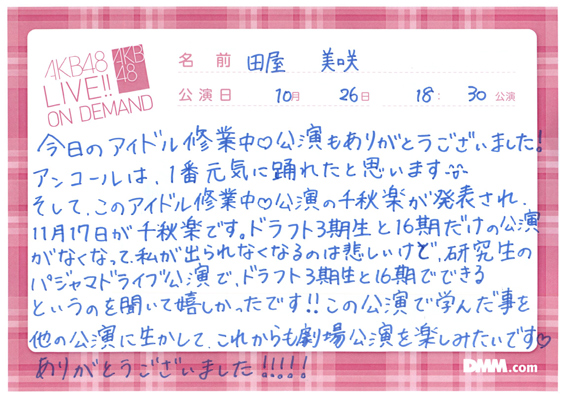 AKB48
LIVE!!
ON DEMAND
AKB
48
名前 田屋 美咲
公演日 10月 26日 18:30 公演
今日のアイドル修業中♡公演もありがとうございました!
アンコールは、1番元気に踊れたと思います
そして、このアイドル修業中♡公演の千秋楽が発表され、
11月17日が千秋楽です。ドラフト3期生と16期だけの公演
がなくなって、私が出られなくなるのは悲しいけど、研究生の
パジャマドライブ公演で、ドラフト3期生と16期でできる
というのを聞いて嬉しかったです!!この公演で学んだ事を
他の公演に生かして、これからも劇場公演を楽しみたいです♡
ありがとうございました!!!!!
DMM.com